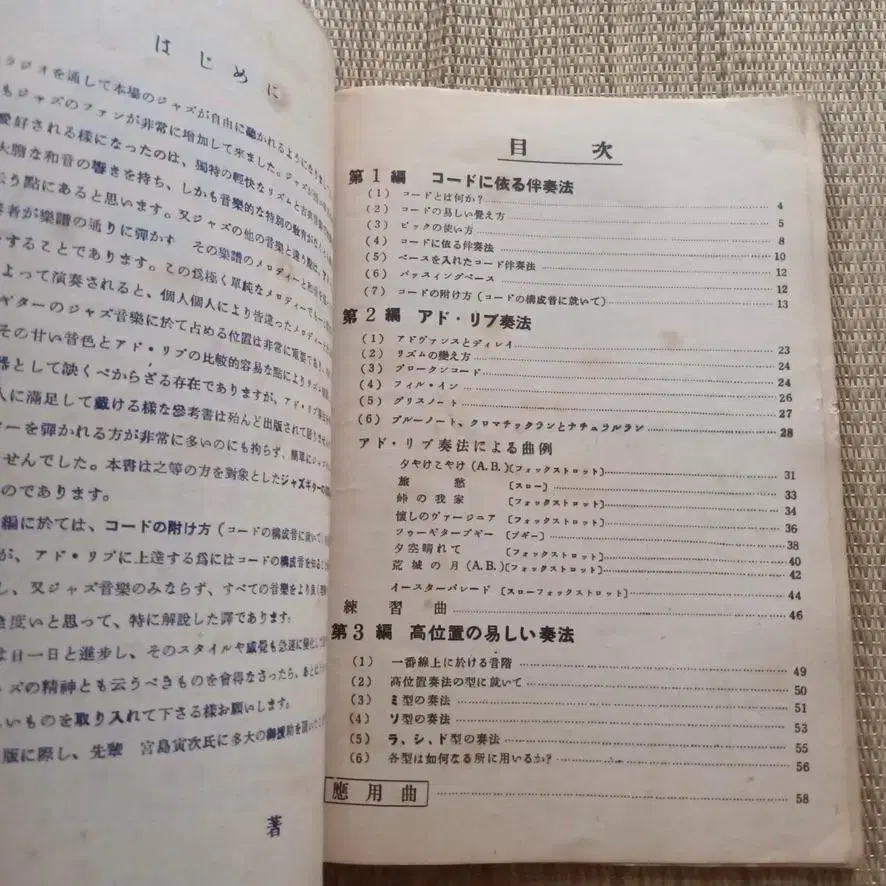 はじめに
ラジオを通して本場のジャズが自由に聽かれるように
もジャズのファンが非常に增加して来ました。ジャズが
愛好される樣になったのは、獨特の輕快なリズムと古
大膽な和音の響きを持ち、しかも音樂的な特別の教育が
云う點にあると思います。又ジャズの他の音樂と違う點は、
奏者が樂譜の通りに彈かず その樂譜のメロディーと和音を
することであります。この爲極く單純なメロディーでも
よって演奏されると、個人個人により皆違ったメロディーと
ギターのジャズ音樂に於て占める位置は非常に重要であり
その甘い音色とアド・リブの比較的容易な點によりリズム
器として缺くべからざる存在でありますが、アド・リブ
人に滿足して戴ける樣な參考書は殆んど出版されて居りません
ターを彈かれる方が非常に多いのにも拘らず、簡單にジャズ
せんでした。本書は之等の方を對象としたジャズギターの
のであります。
編に於ては、コードの附け方(コードの構成音に就いて)
が、アド・リブに上達する爲にはコードの構成音を知る
し、又ジャズ音樂のみならず、すべての音樂をより良く
き度いと思って、特に解說した譯であります。
は日一日と進步し、そのスタイルや感覺も急速に變化して
ズの精神とも云うべきものを會得なさったら、あとは
しいものを取り入れて下さる樣お願いします。
版に際し、先輩 宮島寅次氏に多大の御援助を頂いた
著
目次
第1編 コードに依る伴奏法
(1) コードとは何か? 4
(2) コードの易しい覺え方 5
(3) ピックの使い方 8
(4) コードに依る伴奏法 10
(5) ベースを入れたコード伴奏法 12
(6) パッスィングベース 12
(7) コードの附け方(コードの構成音に就いて) 13
第2編 アド・リブ奏法
(1) アドヴァンスとディレイ 23
(2) リズムの變え方 24
(3) ブロークンコード 24
(4) フィル・イン 26
(5) グリスノート 27
(6) ブルーノート、クロマチックランとナチュラルラン 28
アド・リブ奏法による曲例
夕やけこやけ(A.B.)〔フォックストロット〕 31
旅愁〔スロー〕 33
峠の我家〔フォックストロット〕 34
懷しのヴァージニア〔フォックストロット〕 36
ツゥーギターブギー〔ブギー〕 38
夕空晴れて〔フォックストロット〕 40
荒城の月(A.B.)〔フォックストロット〕 42
イースターパレード〔スローフォックストロット〕 44
練習曲 46
第3編 高位置の易しい奏法
(1) 一番線上に於ける音階 49
(2) 高位置奏法の型に就いて 50
(3) ミ型の奏法 51
(4) ソ型の奏法 53
(5) ラ、シ、ド型の奏法 55
(6) 各型は如何なる所に用いるか? 56
應用曲 58